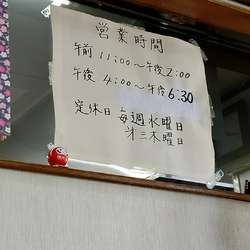 営業時間
午前 11:00～午後2:00
午後 4:00～午後6:30
定休日 毎週水曜日
第三木曜日